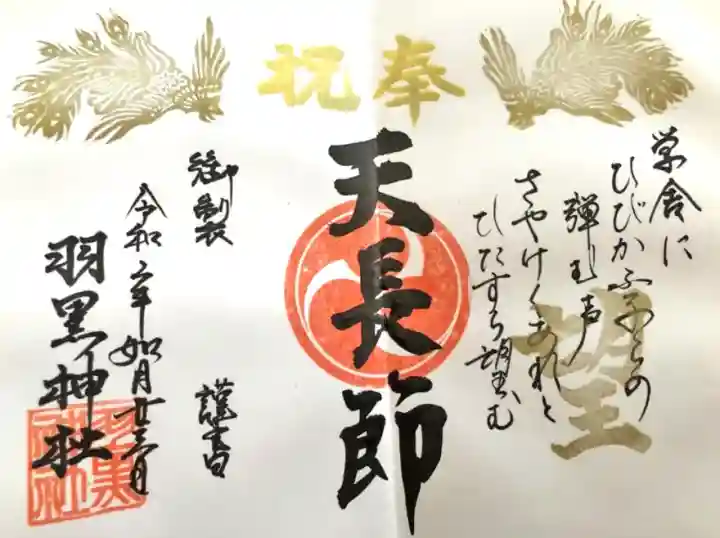 奉祝
学舎に
ひびかふ子らの
弾む声
さやけくあれと
ひたすら望む
望
天長節
御製 謹書
令和六年如月廿三日
羽黒神社
羽黒
神社